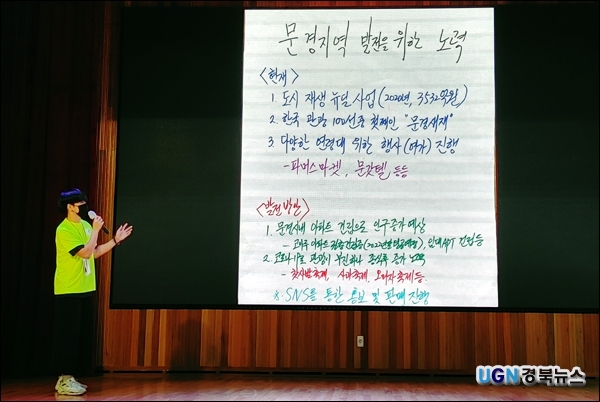 문경지역 발전을 위한 노력
<현재>
1. 도시 재생 뉴딜 사업 (2020년, 3532억원)
2. 한국 관광 100선중 첫째인 "문경새재"
3. 다양한 연령대 위한 행사(여가) 진행
- 파머스마켓, 문갓텔, 등등
<발전방안>
1. 문경시내 아파트 건립으로 인구증가 예상
- 고층 아파트 (2022년 예정), 임대APT 건립 등
2. 코로나19로 관광이 부진하나 종식후 증가 노력
- 찻사발축제, 사과축제, 오미자축제 등
※ SNS를 통한 홍보 및 판매 진행
UGN경북뉴스